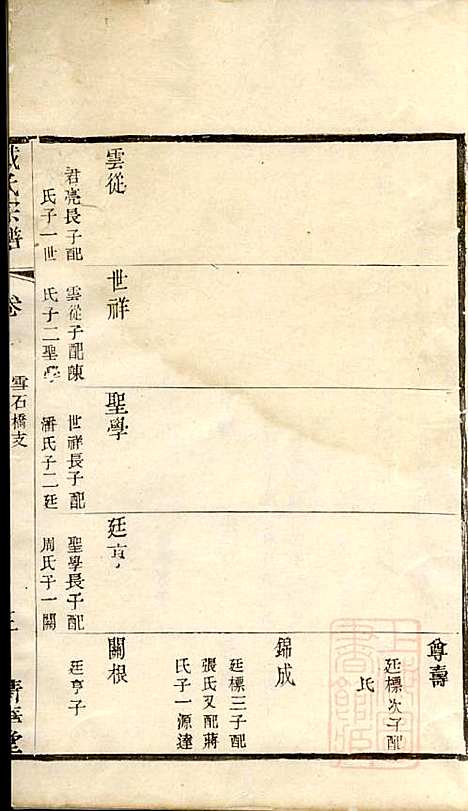 雲從
君亮長子配
氏子一世
世祥
雲從子配陳
氏子二聖學
聖學
世祥長子配
潘氏子二廷
廷亨
聖學長子配
周氏子一關
尊壽
廷標次子配
氏
錦成
廷標三子配
張氏又配蔣
氏子一源達
關根
廷亨子
氏宗譜
卷
雪石橋支
三
堂